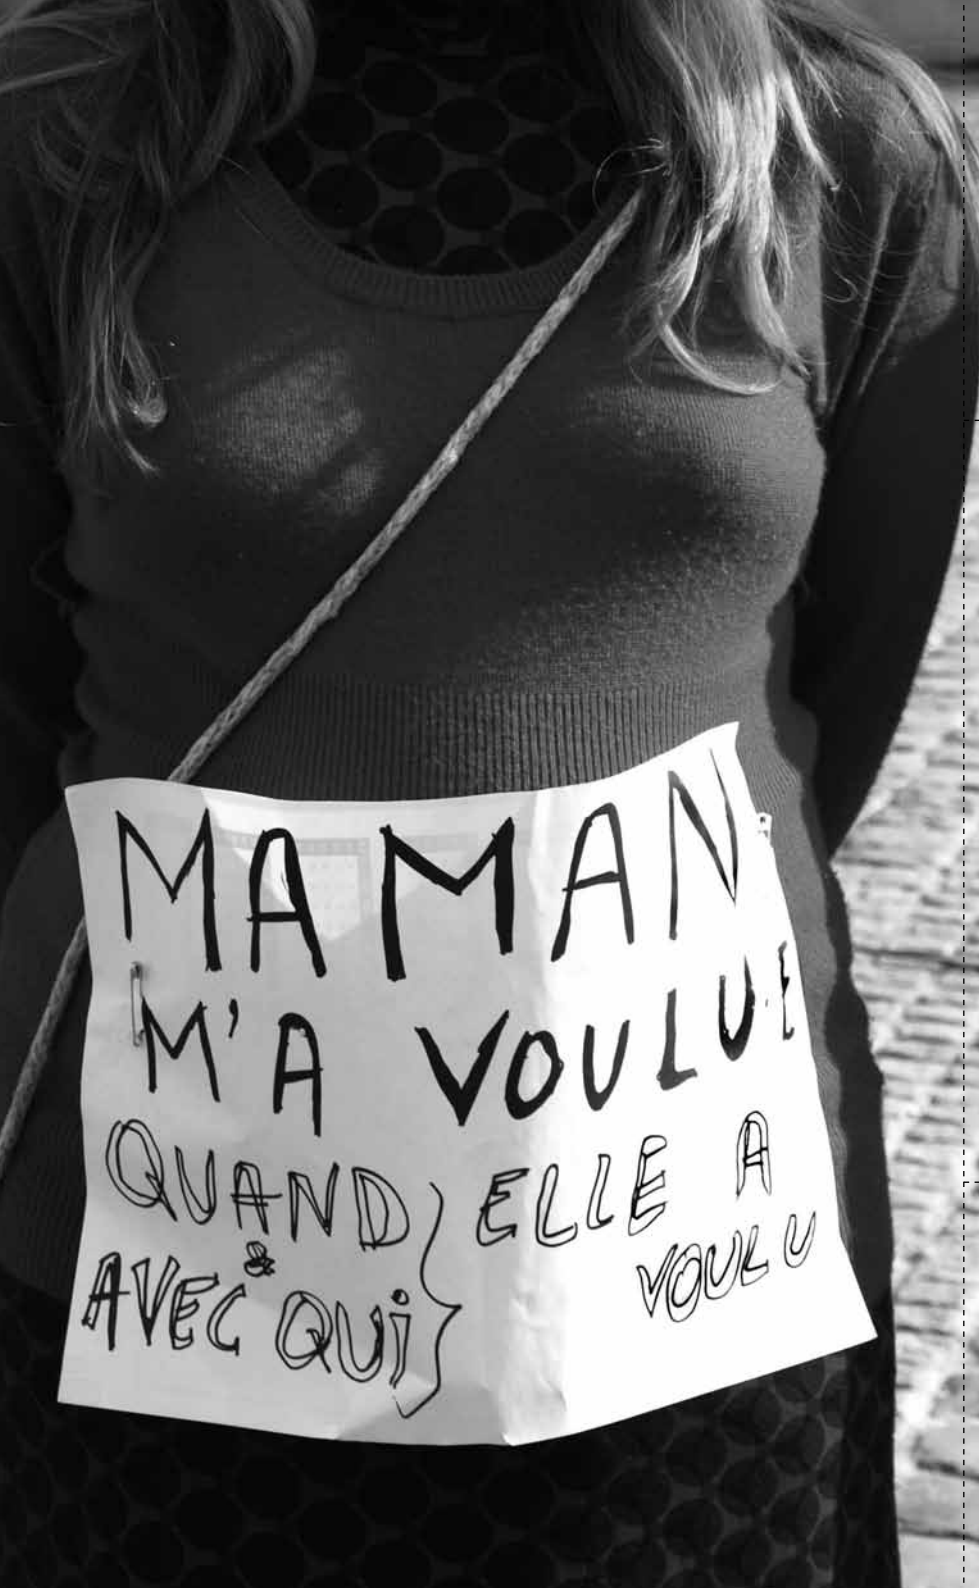 MAMAN
M'A VOULUE
QUAND
&
AVEC QUi } ELLE A
VOULU